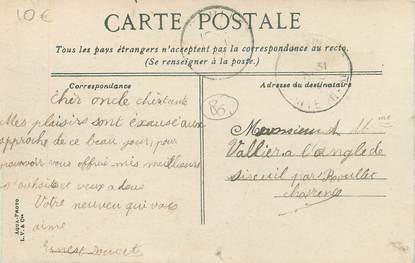 10€
CARTE POSTALE
Tous les pays étrangers n'acceptent pas la correspondance au recto.
(Se renseigner à la poste.)
Correspondance
Adresse du destinataire
Cher oncle cher tante
Mes plaisirs sont éxausé aux
approche de ce beau jour, pour
pouvoir vous offrir mes meilleurs
souhaits et veux a deux
Votre neuveu qui vous
aime
Ernest Doucet
Monsieur Mme
Vallier a l'angle de
par Roullet
charente
AQUA-PHOTO
L. V. & Cie